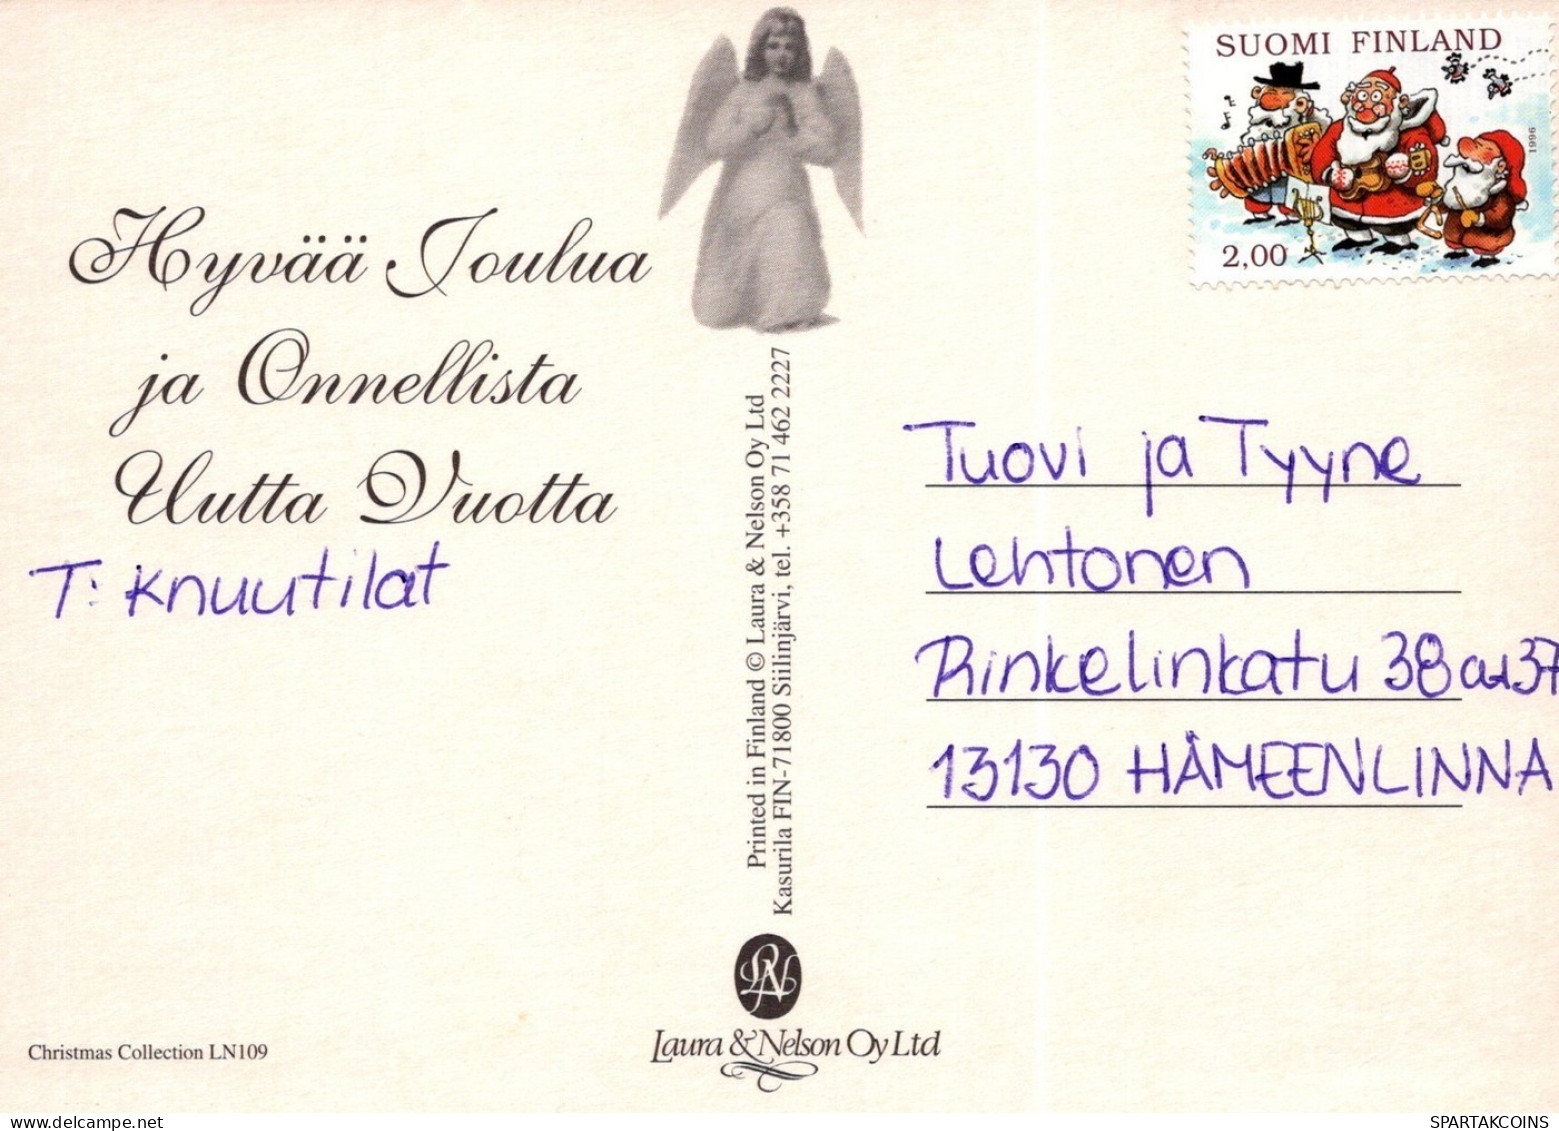 SUOMI FINLAND
1996
2,00
Hyvää Joulua
ja Onnellista
Uutta Vuotta
T: Knuutilat
Printed in Finland © Laura & Nelson Oy Ltd
Kasurila FIN-71800 Siilinjärvi, tel. +358 71 462 2227
Tuovi ja Tyyne
Lehtonen
Rinkelinkatu 38 as 37
13130 HÄMEENLINNA
LN
Laura & Nelson Oy Ltd
Christmas Collection LN109
SPARTAKCOINS